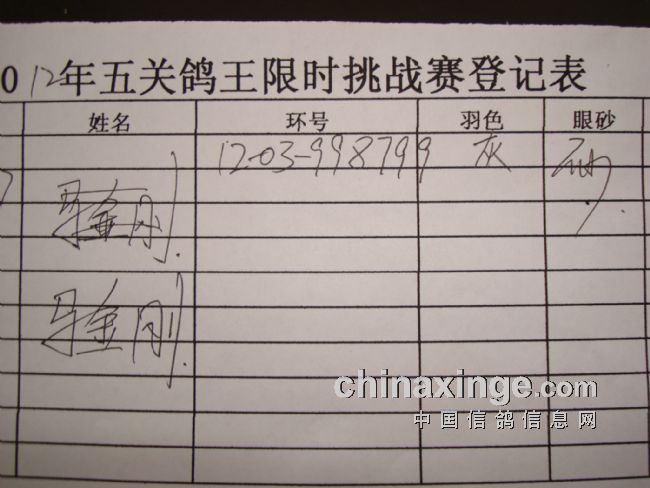 012年五关鸽王限时挑战赛登记表
姓名 环号 羽色 眼砂
12-03-998799 灰 砂
马金刚
马金刚
chinaxinge.com
中国信鸽信息网